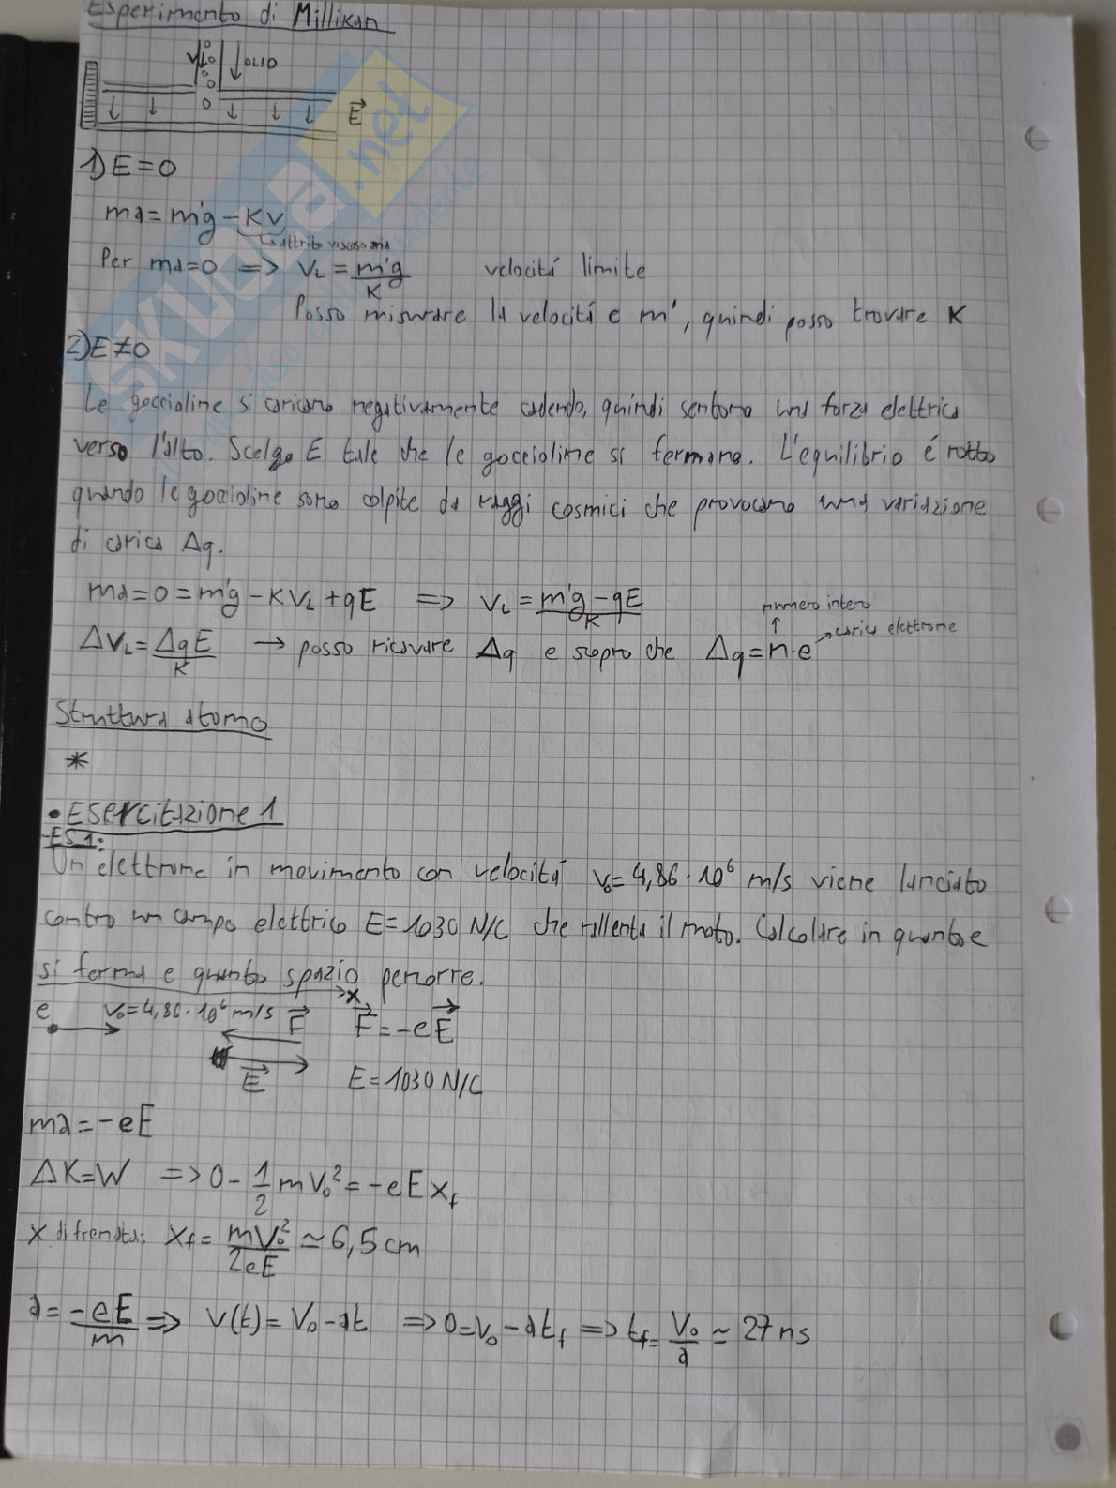 Esperimento di Millikan
V↓ ↓OLIO
E⃗
1) E=0
ma = m'g - Kv
↳ attrito viscoso ma
Per ma=0 => V_L = m'g/K velocitá limite
Posso misurare la velocitá e m', quindi posso trovare K
2) E≠0
Le goccioline si caricano negativamente cadendo, quindi sentono una forza elettrica
verso l'alto. Scelgo E tale che le goccioline si fermano. L'equilibrio é rotto
quando le goccioline sono colpite da raggi cosmici che provocano una variazione
di carica Δq.
ma=0=m'g-KV_L+qE => V_L = (m'g-qE)/K
numero intero
↑ →carica elettrone
ΔV_L = ΔqE/K → posso ricavare Δq e scopro che Δq=n·e
Struttura atomo
*
• Esercitazione 1
-ES 1:
Un elettrone in movimento con velocitá v₀=4,86·10⁶ m/s viene lanciato
contro un campo elettrico E=1030 N/C che rallenta il moto. Calcolare in quanto e
si ferma e quanto spazio percorre.
→x
e v₀=4,86·10⁶ m/s F⃗ F⃗=-eE⃗
E⃗ E=1030 N/C
ma=-eE
ΔK=W => 0 - 1/2 mV₀² = -eEx_f
x di frenata: x_f = mV₀²/2eE ≃ 6,5 cm
a = -eE/m => V(t)=V₀-at => 0=V₀-at_f => t_f = V₀/a ≃ 27 ns
SKUOLA.net